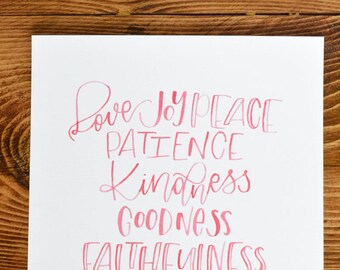 Love JOY PEACE
PATIENCE
Kindness
GOODNESS
FAITHFULNESS